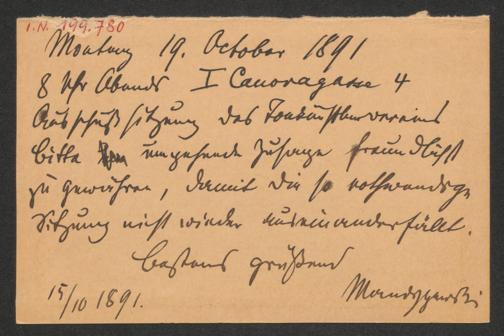 I.N. 199.780
Montag 19. October 1891
8 Uhr Abends I Canovagasse 4
Ausschußsitzung des Tonkünstlervereins
bitte um umgehende Zusage freundlichst
zu gewähren, damit die so nothwendige
Sitzung nicht wieder auseinanderfällt.
Bestens grüßend
15/10 1891. Mandyczewski